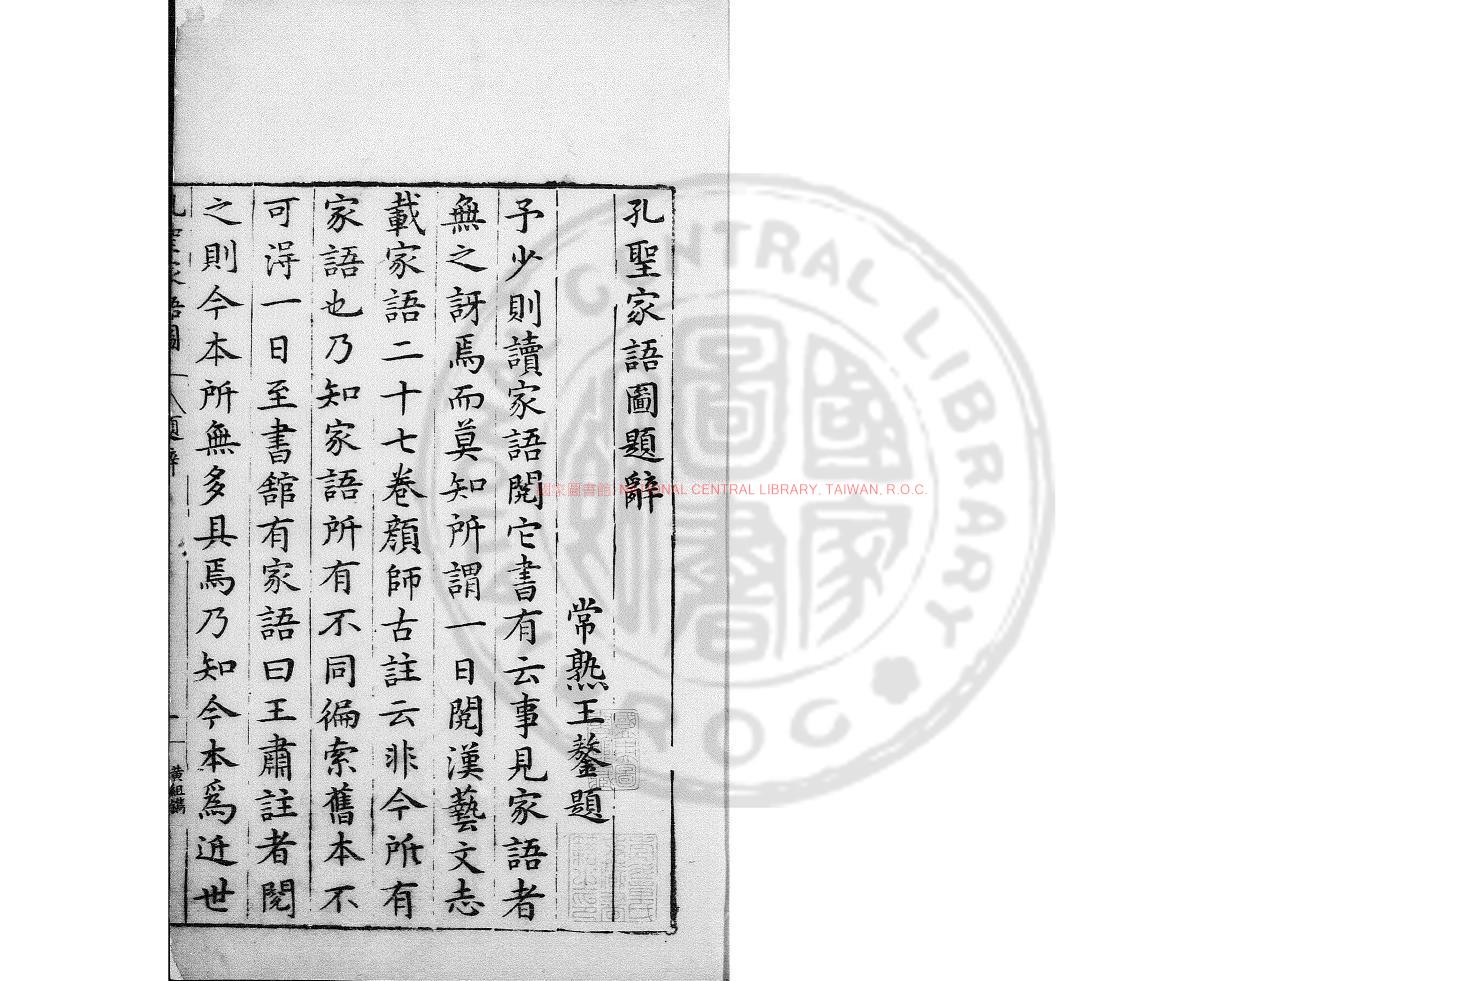 孔聖家語圖題辭
常熟王鏊題
予少則讀家語閱它書有云事見家語者
無之訝焉而莫知所謂一日閱漢藝文志
載家語二十七卷顏師古註云非今所有
家語也乃知家語所有不同徧索舊本不
可淂一日至書舘有家語曰王肅註者閱
之則今本所無多具焉乃知今本爲近世
孔聖家語圖 題辭 一 黄組鐫
國家圖書館 NATIONAL CENTRAL LIBRARY, TAIWAN, R.O.C.
NATIONAL CENTRAL LIBRARY R.O.C.
國家圖書館